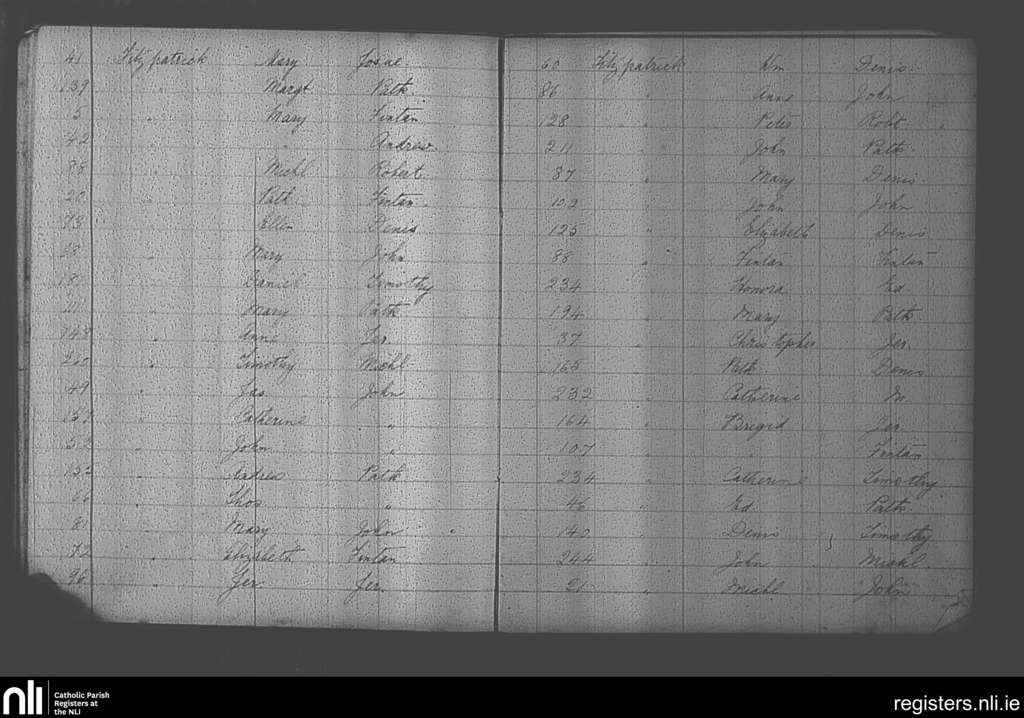 41 Fitzpatrick Mary
139 " Margt Patk
5 " Mary Fintan
42 " " Andrew
38 " Michl Robert
20 " Patk Fintan
73 " Ellen Denis
68 " Mary John
181 " Daniel Timothy
" Mary Patk
143 " Anne Jer.
" Timothy Michl
49 " Jas John
157 " Catherine "
52 " John "
132 " Andrew Patk
66 " Thos "
81 " Mary John
72 " Elizabeth Fintan
96 " Jer. Jer.
60 Fitzpatrick Wm Denis
86 " Anne John
128 " Peter Robt
211 " John Patk
87 " Mary Denis
102 " John John
125 " Elizabeth Denis
88 " Fintan Fintan
234 " Honora Ed
194 " Mary Patk
37 " Christopher Jer.
165 " Patk Denis
232 " Catherine M.
164 " Brigid Jer.
107 " " Fintan
234 " Catherine Timothy
46 " Ed Patk
140 " Denis Timothy
244 " John Michl
21 " Michl John
nli Catholic Parish
Registers at
the NLI
registers.nli.ie